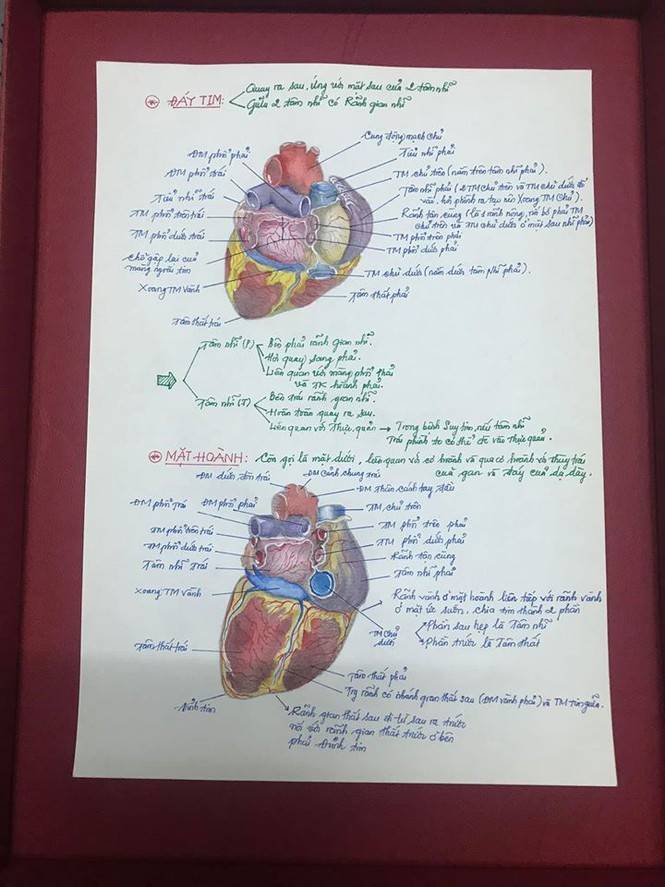 ĐÁY TIM:
Quay ra sau, ứng với mặt sau của 2 tâm nhĩ
Giữa 2 tâm nhĩ có Rãnh gian nhĩ
Cung động mạch chủ
ĐM phổi phải
Tiểu nhĩ phải
ĐM phổi trái
TM chủ trên (nằm trên tâm nhĩ phải).
Tiểu nhĩ trái
Tâm nhĩ phải (2 TM chủ trên và TM chủ dưới đổ
vào. hơi phình ra tạo nên Xoang TM Chủ).
TM phổi trên trái
Rãnh tận cùng (là 1 rãnh nông, nối bờ phải TM
chủ trên và TM chủ dưới ở mặt sau nhĩ phải)
TM phổi dưới trái
TM phổi trên phải
TM phổi dưới phải
Chỗ gấp lại của
màng ngoài tim
TM chủ dưới (nằm dưới tâm Nhĩ phải).
Xoang TM vành
Tâm thất phải
Tâm thất trái
Tâm nhĩ (P)
Bên phải rãnh gian nhĩ.
Hơi quay sang phải.
Liên quan với màng phổi phải
và TK hoành phải.
Tâm nhĩ (T)
Bên trái rãnh gian nhĩ.
Hoàn toàn quay ra sau.
Liên quan với Thực quản → Trong bệnh Suy tim, nếu tâm nhĩ
Trái phình to có thể đè vào thực quản.
MẶT HOÀNH: Còn gọi là mặt dưới, liên quan với cơ hoành và qua cơ hoành với thùy trái
của gan và đáy của dạ dày.
ĐM dưới đòn trái
ĐM cảnh chung trái
ĐM thân cánh tay đầu
ĐM phổi Trái
ĐM phổi phải
TM chủ trên
TM phổi trên trái
TM phổi trên phải
TM phổi dưới trái
TM phổi dưới phải
Tâm nhĩ Trái
Rãnh tận cùng
Tâm nhĩ phải
Xoang TM vành
Rãnh vành ở mặt hoành liên tiếp với rãnh vành
ở mặt ức sườn, chia tim thành 2 phần
Phần sau hẹp là Tâm nhĩ
Phần trước là Tâm thất
TM Chủ
dưới
Tâm thất trái
Tâm thất phải
Trg rãnh có nhánh gian thất sau (ĐM vành phải) và TM tim giữa.
Đỉnh tim
Rãnh gian thất sau đi từ sau ra trước
nối với rãnh gian thất trước ở bên
phải đỉnh tim